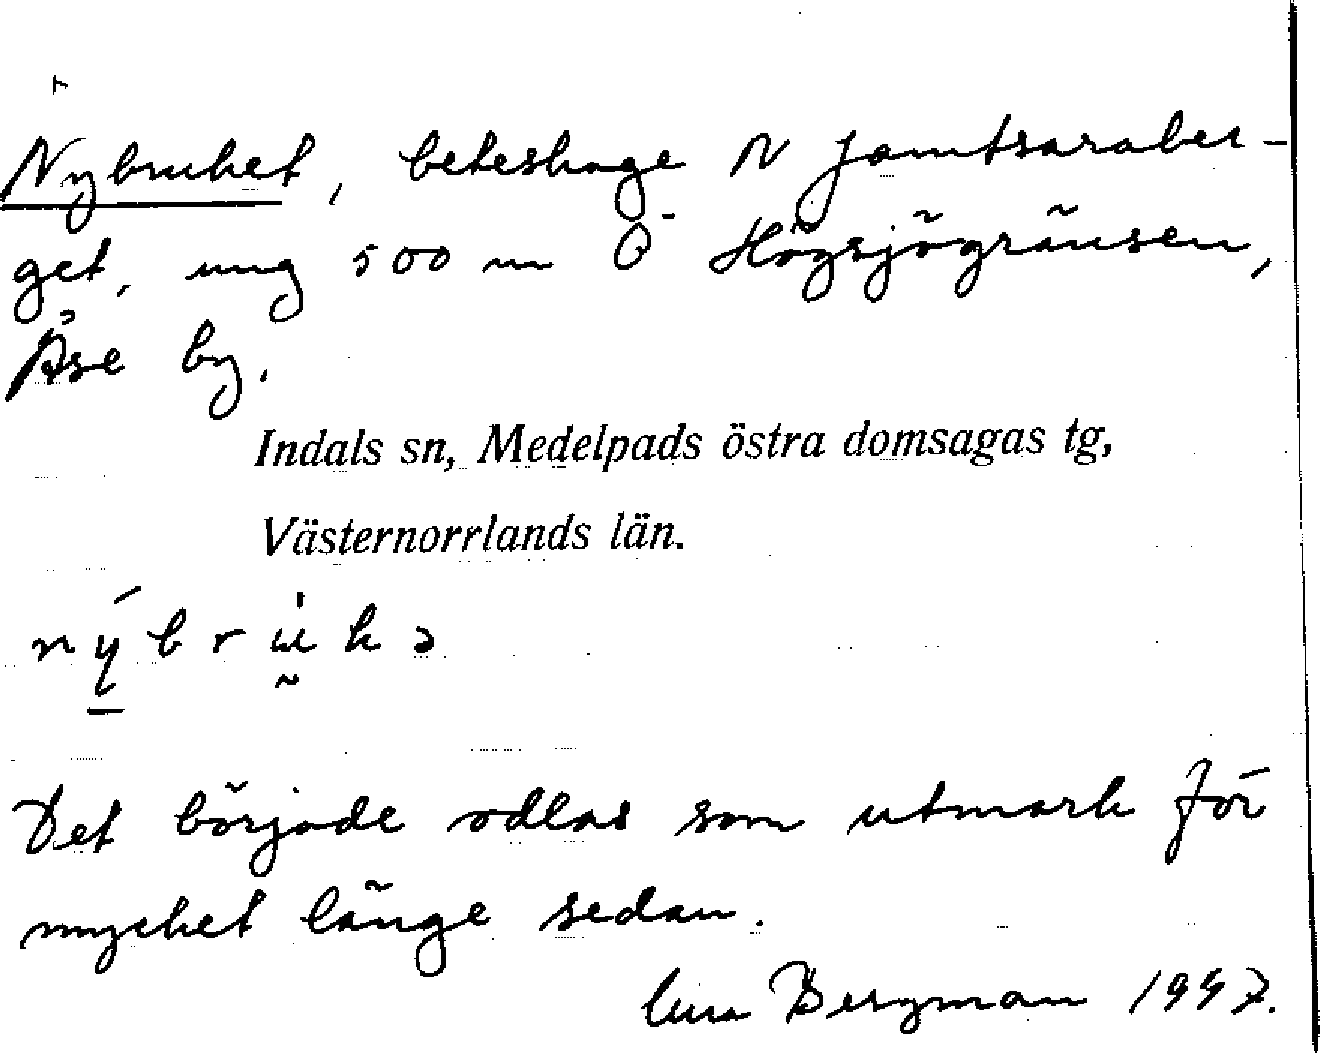 Nybruket, beteshage N Jamtsaraber-
get, ung 500 m Ö Högsjögränsen,
Åse by.
Indals sn, Medelpads östra domsagas tg,
Västernorrlands län.
nýbrukə
Det började odlas som utmark för
mycket länge sedan.
Bergman 1997.